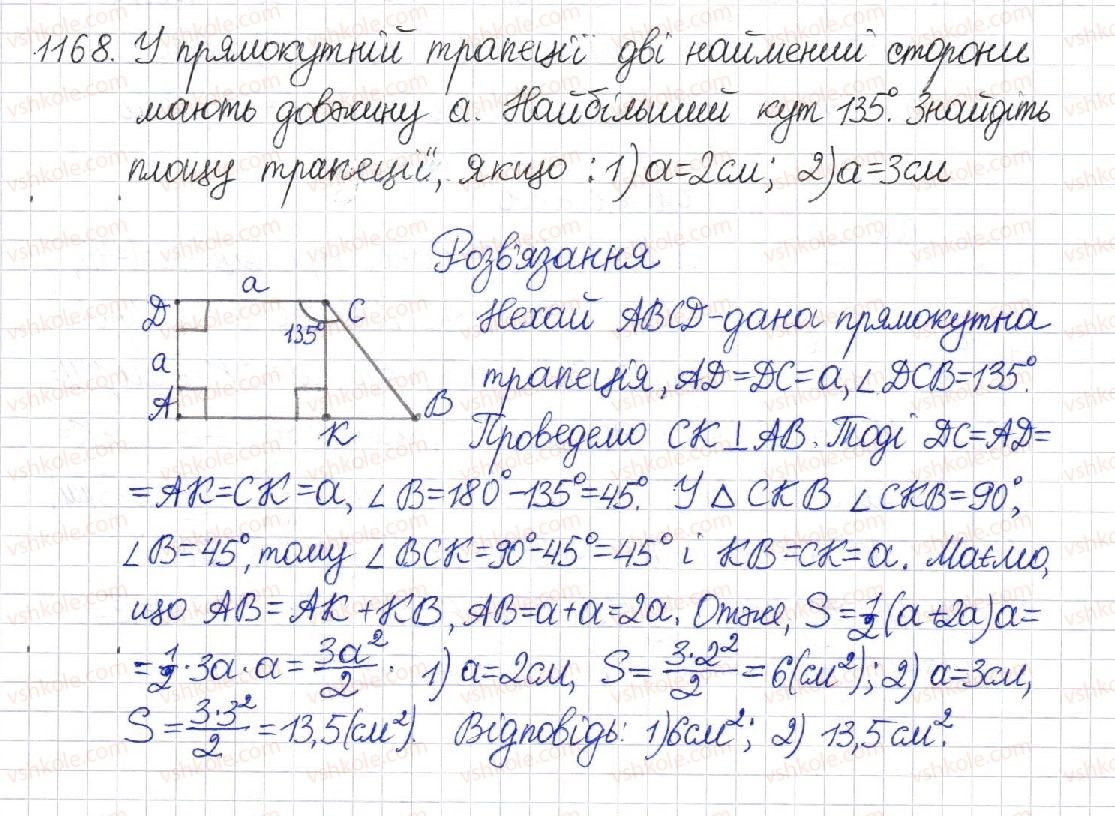 1168. У прямокутній трапеції дві найменші сторони
мають довжину a. Найбільший кут 135°. Знайдіть
площу трапеції, якщо : 1) a=2см; 2) a=3см
Розв'язання
a
D
C
135°
a
A
K
B
Нехай ABCD-дана прямокутна
трапеція, AD=DC=a, ∠DCB=135°.
Проведемо CK⊥AB. Тоді DC=AD=
=AK=CK=a, ∠B=180°-135°=45°. У △CKB ∠CKB=90°,
∠B=45°, тому ∠BCK=90°-45°=45° і KB=CK=a. Маємо,
що AB=AK+KB, AB=a+a=2a. Отже, S=1/2(a+2a)a=
=1/2·3a·a=3a²/2. 1) a=2см, S=3·2²/2=6(см²); 2) a=3см,
S=3·3²/2=13,5(см²). Відповідь: 1) 6см²; 2) 13,5см².
vshkole.com